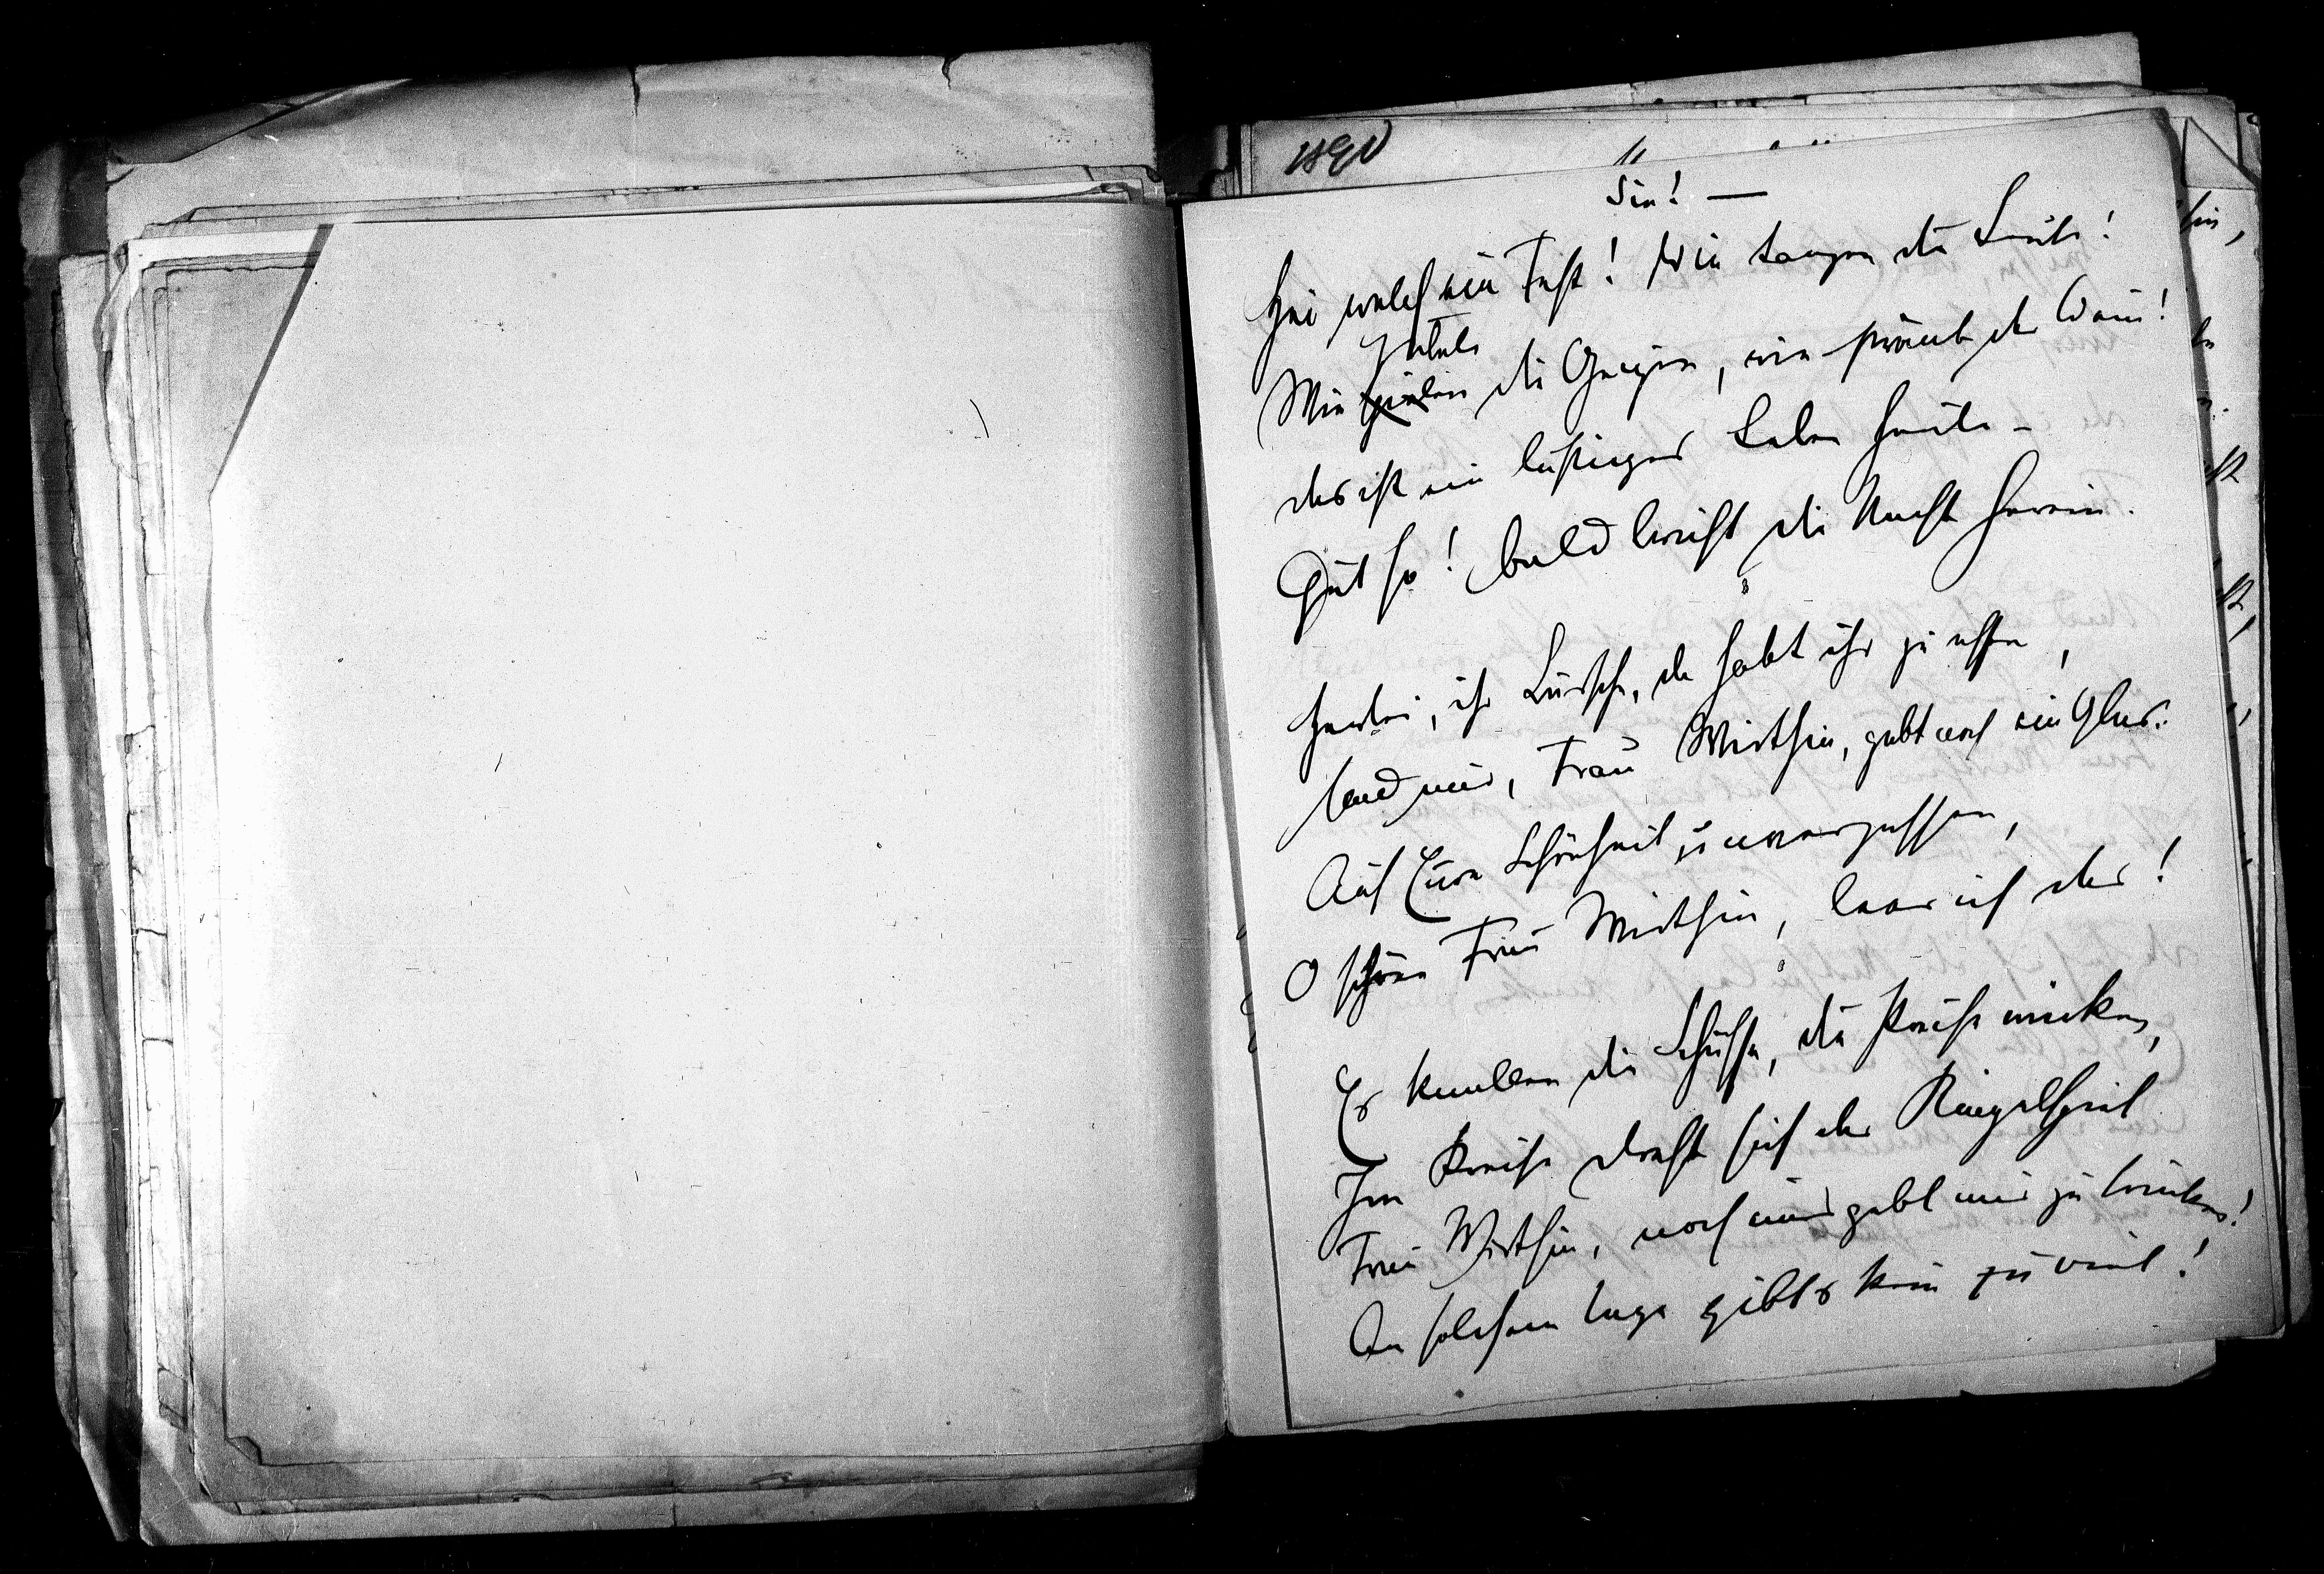 Sie! —
Hei welch ein Fest! Wie tanzen die Leute!
jubeln
Wie spielen die Geigen, wie strömt der Wein!
das ist ein lustiges Leben heute –
Gut so! bald bricht die Nacht herein.
Herbei, ihr Bursche, da habt ihr zu essen,
Und mir, Frau Wirthin, gebt noch ein Glas:
Auf Eure Schönheit zu vergessen,
O schöne Frau Wirthin, leer ich das!
Es knallen die Schüsse, die Preise winken,
Im Kreise dreht sich das Ringelspiel
Frau Wirthin, noch eins gebt mir zu trinken!
An solchem Tage gibts kein zu viel!